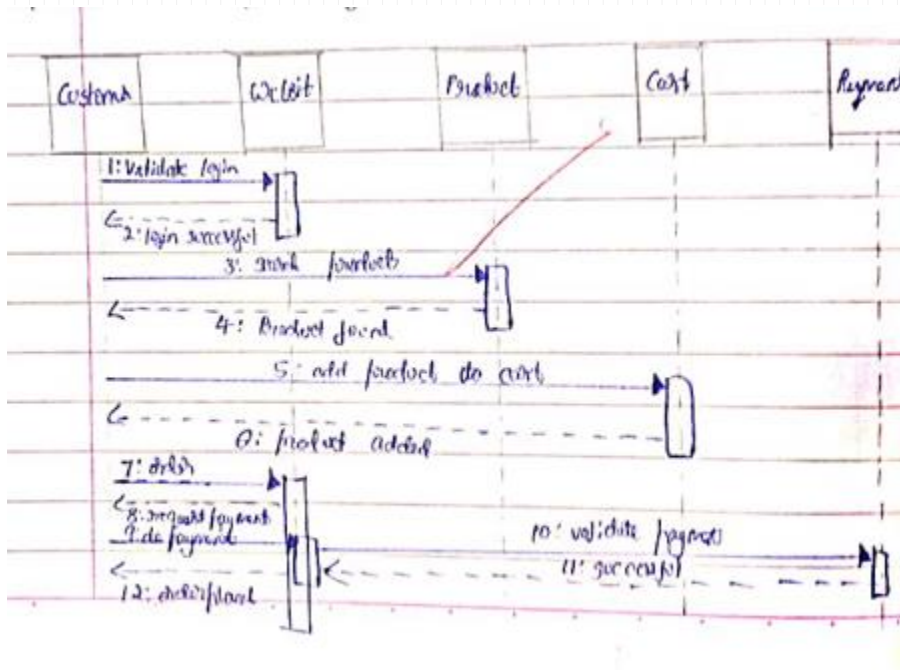 Customer Website Product Cart Payment
1: Validate login
2: login successful
3: search products
4: Product found
5: add product to cart
6: product added
7: order
8: request payment
9: do payment
10: validate payment
11: successful
12: order placed